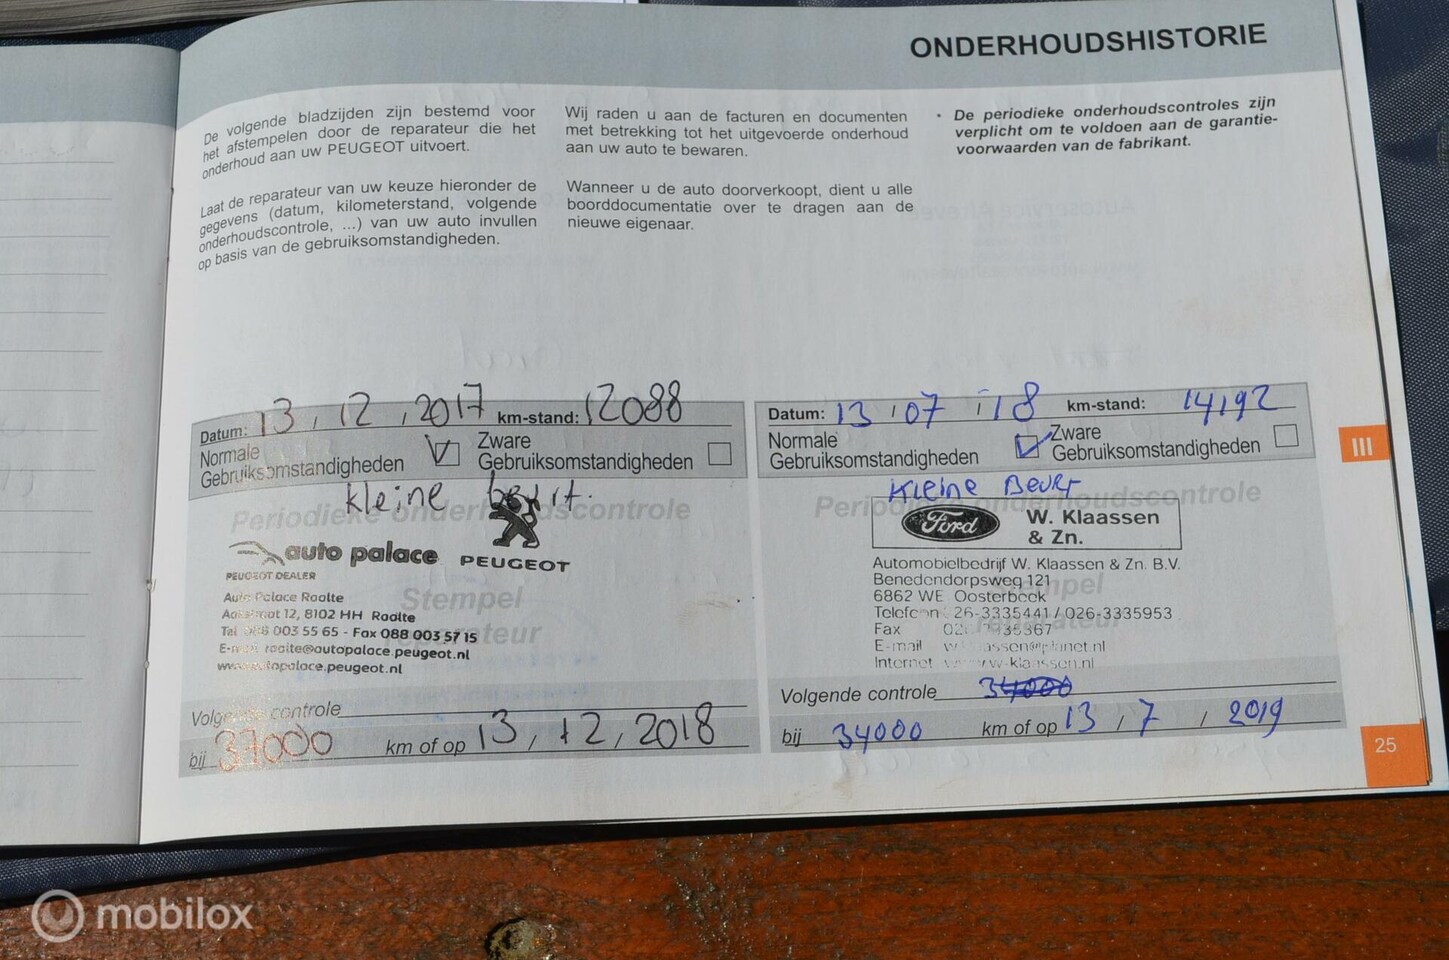 ONDERHOUDSHISTORIE
De volgende bladzijden zijn bestemd voor
het afstempelen door de reparateur die het
onderhoud aan uw PEUGEOT uitvoert.
Laat de reparateur van uw keuze hieronder de
gegevens (datum, kilometerstand, volgende
onderhoudscontrole, ...) van uw auto invullen
op basis van de gebruiksomstandigheden.
Wij raden u aan de facturen en documenten
met betrekking tot het uitgevoerde onderhoud
aan uw auto te bewaren.
Wanneer u de auto doorverkoopt, dient u alle
boorddocumentatie over te dragen aan de
nieuwe eigenaar.
• De periodieke onderhoudscontroles zijn
verplicht om te voldoen aan de garantie-
voorwaarden van de fabrikant.
Datum: 13, 12, 2017 km-stand: 12088
Normale
Gebruiksomstandigheden
Zware
Gebruiksomstandigheden
kleine beurt.
Periodieke onderhoudscontrole
auto palace PEUGEOT
PEUGEOT DEALER
Auto Palace Raalte
12, 8102 HH Raalte
Tel 088 003 55 65 - Fax 088 003 57 15
E-mail raalte@autopalace.peugeot.nl
www.autopalace.peugeot.nl
Stempel
reparateur
Volgende controle
bij 37000 km of op 13, 12, 2018
Datum: 13 / 07 / 18 km-stand: 14192
Normale
Gebruiksomstandigheden
Zware
Gebruiksomstandigheden
Kleine Beurt
Periodieke onderhoudscontrole
Ford W. Klaassen
& Zn.
Automobielbedrijf W. Klaassen & Zn. B.V.
Benedendorpsweg 121
6862 WE Oosterbeek
Telefoon 26-3335441 / 026-3335953
Fax
E-mail
Internet
Stempel
reparateur
Volgende controle 34000
bij 34000 km of op 13 / 7 / 2019
III
25
mobilox